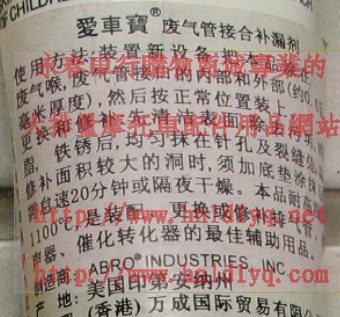 OF CHILDRE
愛車寶® 废气管接合补漏剂
使用方法:装置新设备,把本品涂在
废气喉,废气管接口的内部和外部(约0.65
毫米厚度),然后按正常位置装上。
更换和修补,先清洁表面,除油
脂,铁锈后,均匀抹在针孔及裂缝
修补面积较大的洞时,须加底垫涂抹
怠速20分钟或隔夜干燥。本品耐高
1100℃,是装配、更换或修补排气管
声器、催化转化器的最佳辅助用品。
制造商: ABRO® INDUSTRIES, INC
产地: 美国印第安纳州
(香港)万成国际贸易有限
www.hnldlyq.com
摩托車配件用品網站
www.hnldlyq.com